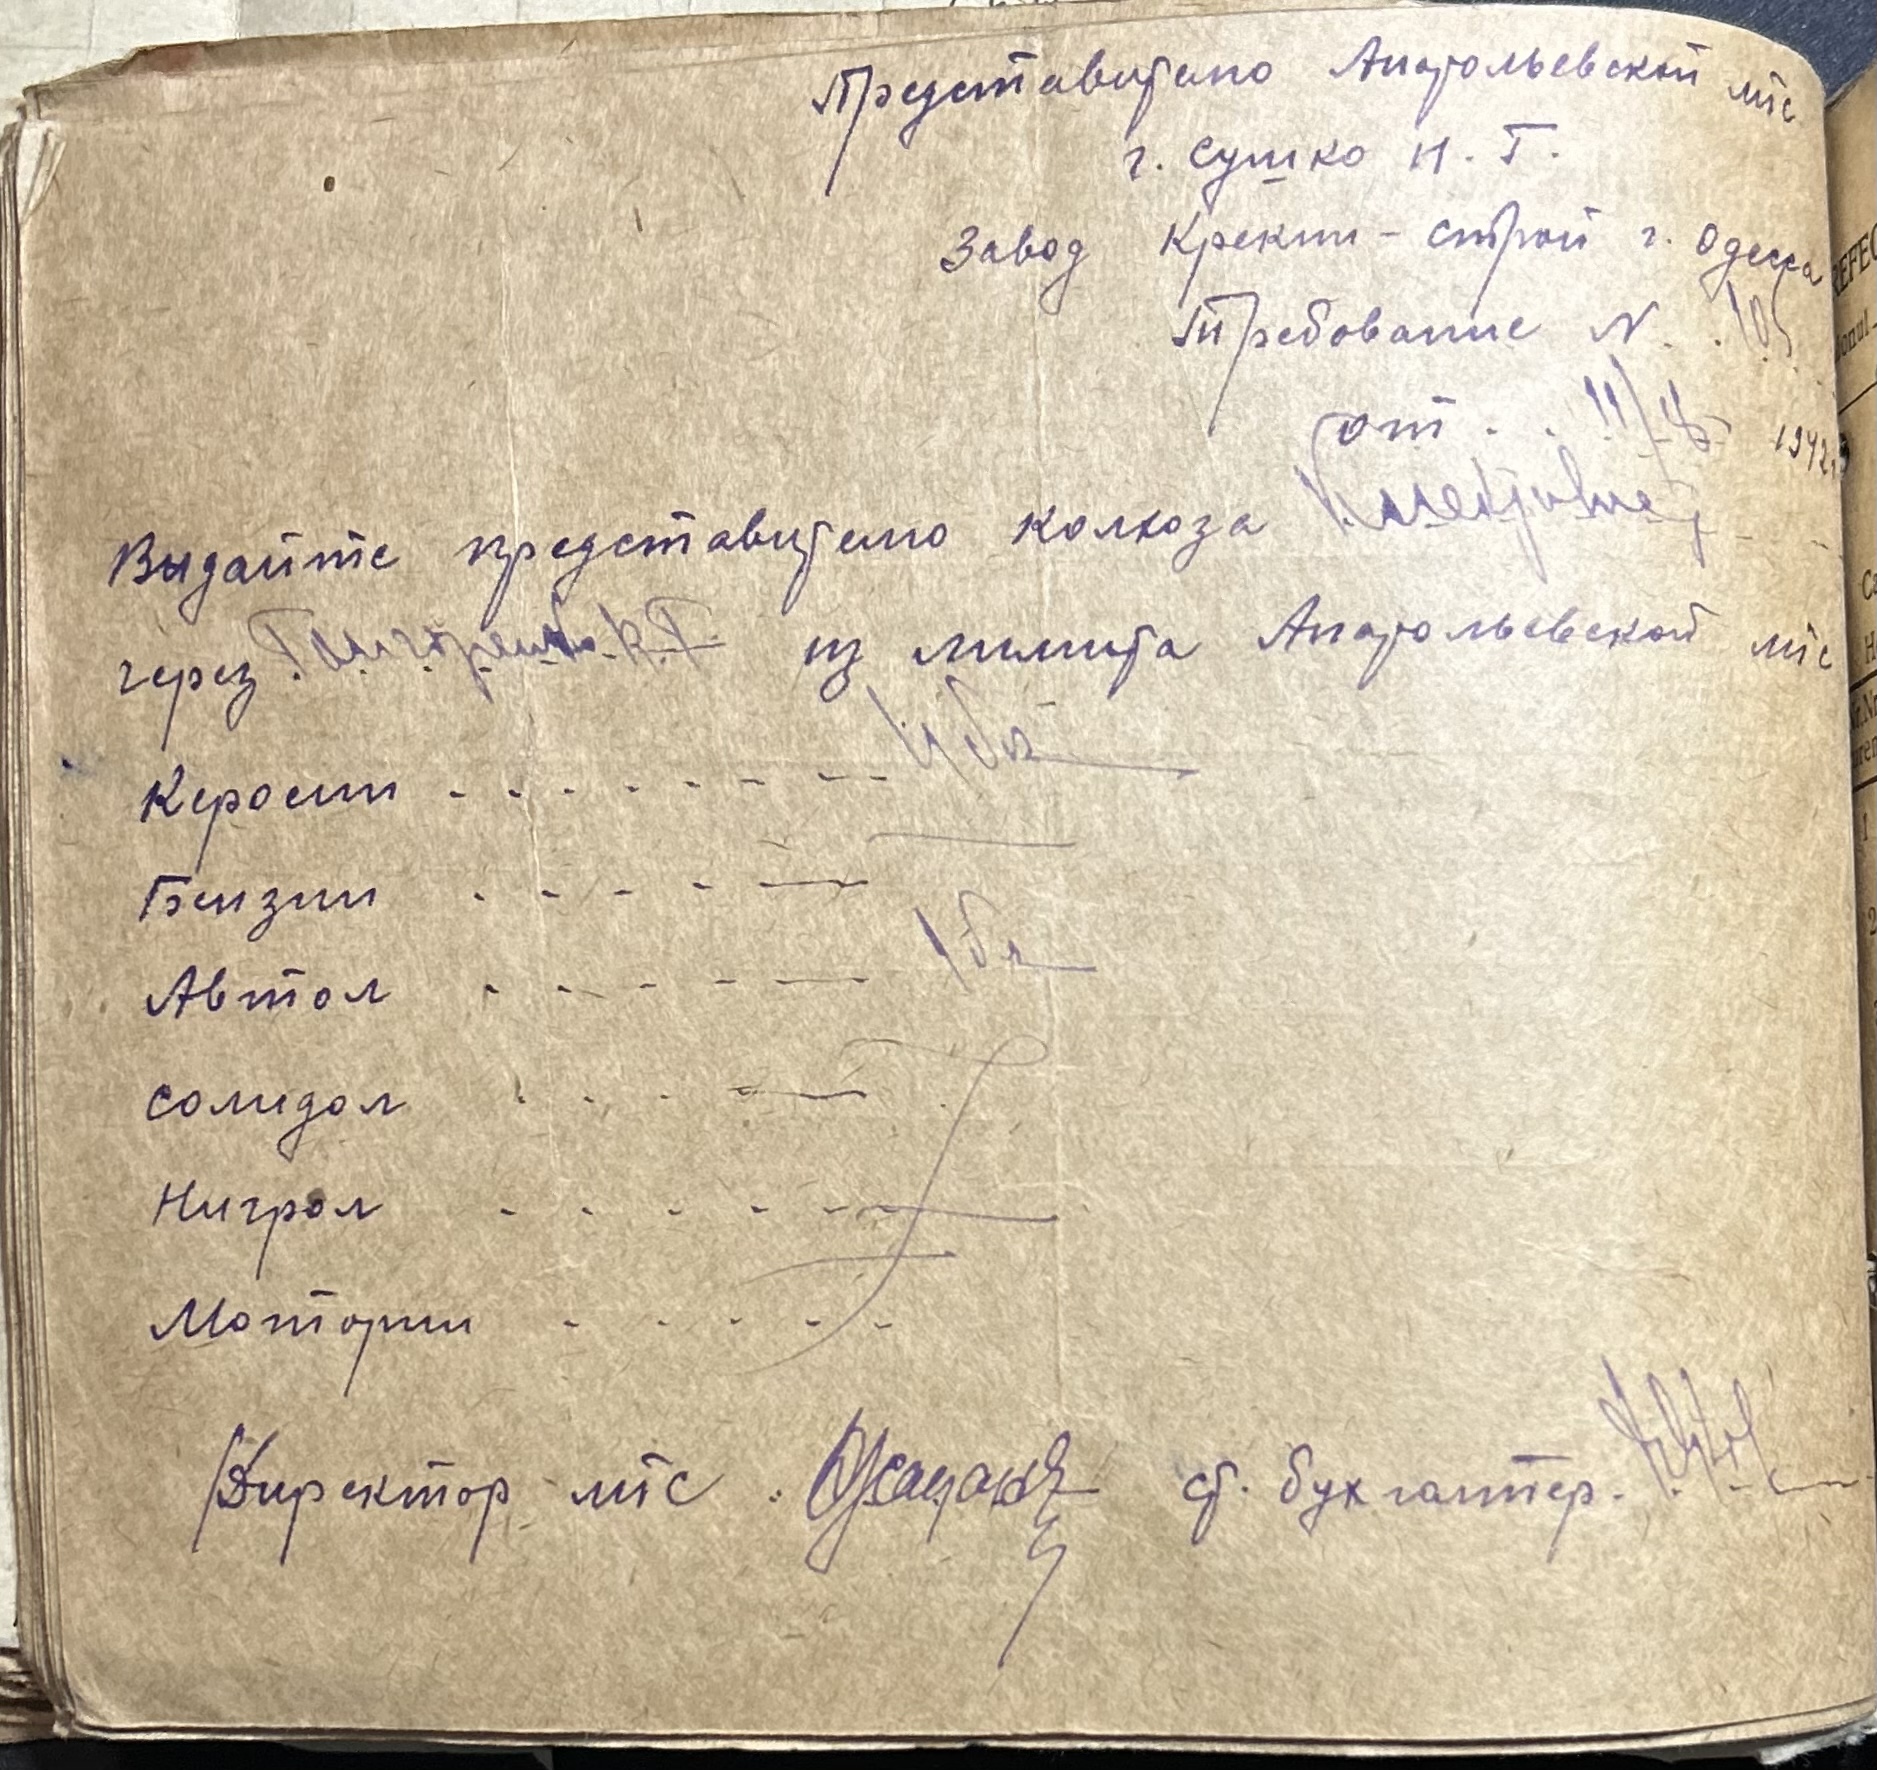 Представителю Анатольевской мтс
г. Сушко Н. Г.
Завод Крекин-строй г. Одесса
Требование N. 105
от . . 11/ 1942
Выдайте представителю колхоза
через из лимита Анатольевской мтс
Керосин
Бензин
Автол
Солидол
Нигрол
Моторин
Директор мтс ст. бухгалтер.
REFEC